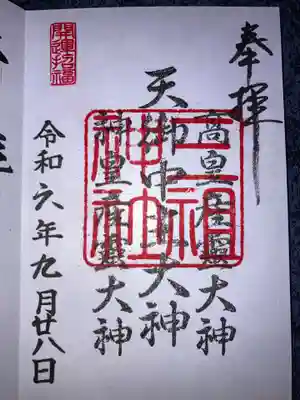 奉拝
高皇産靈大神
天御中主大神
神皇産靈大神
令和六年九月廿八日
開運招福
三祖神社